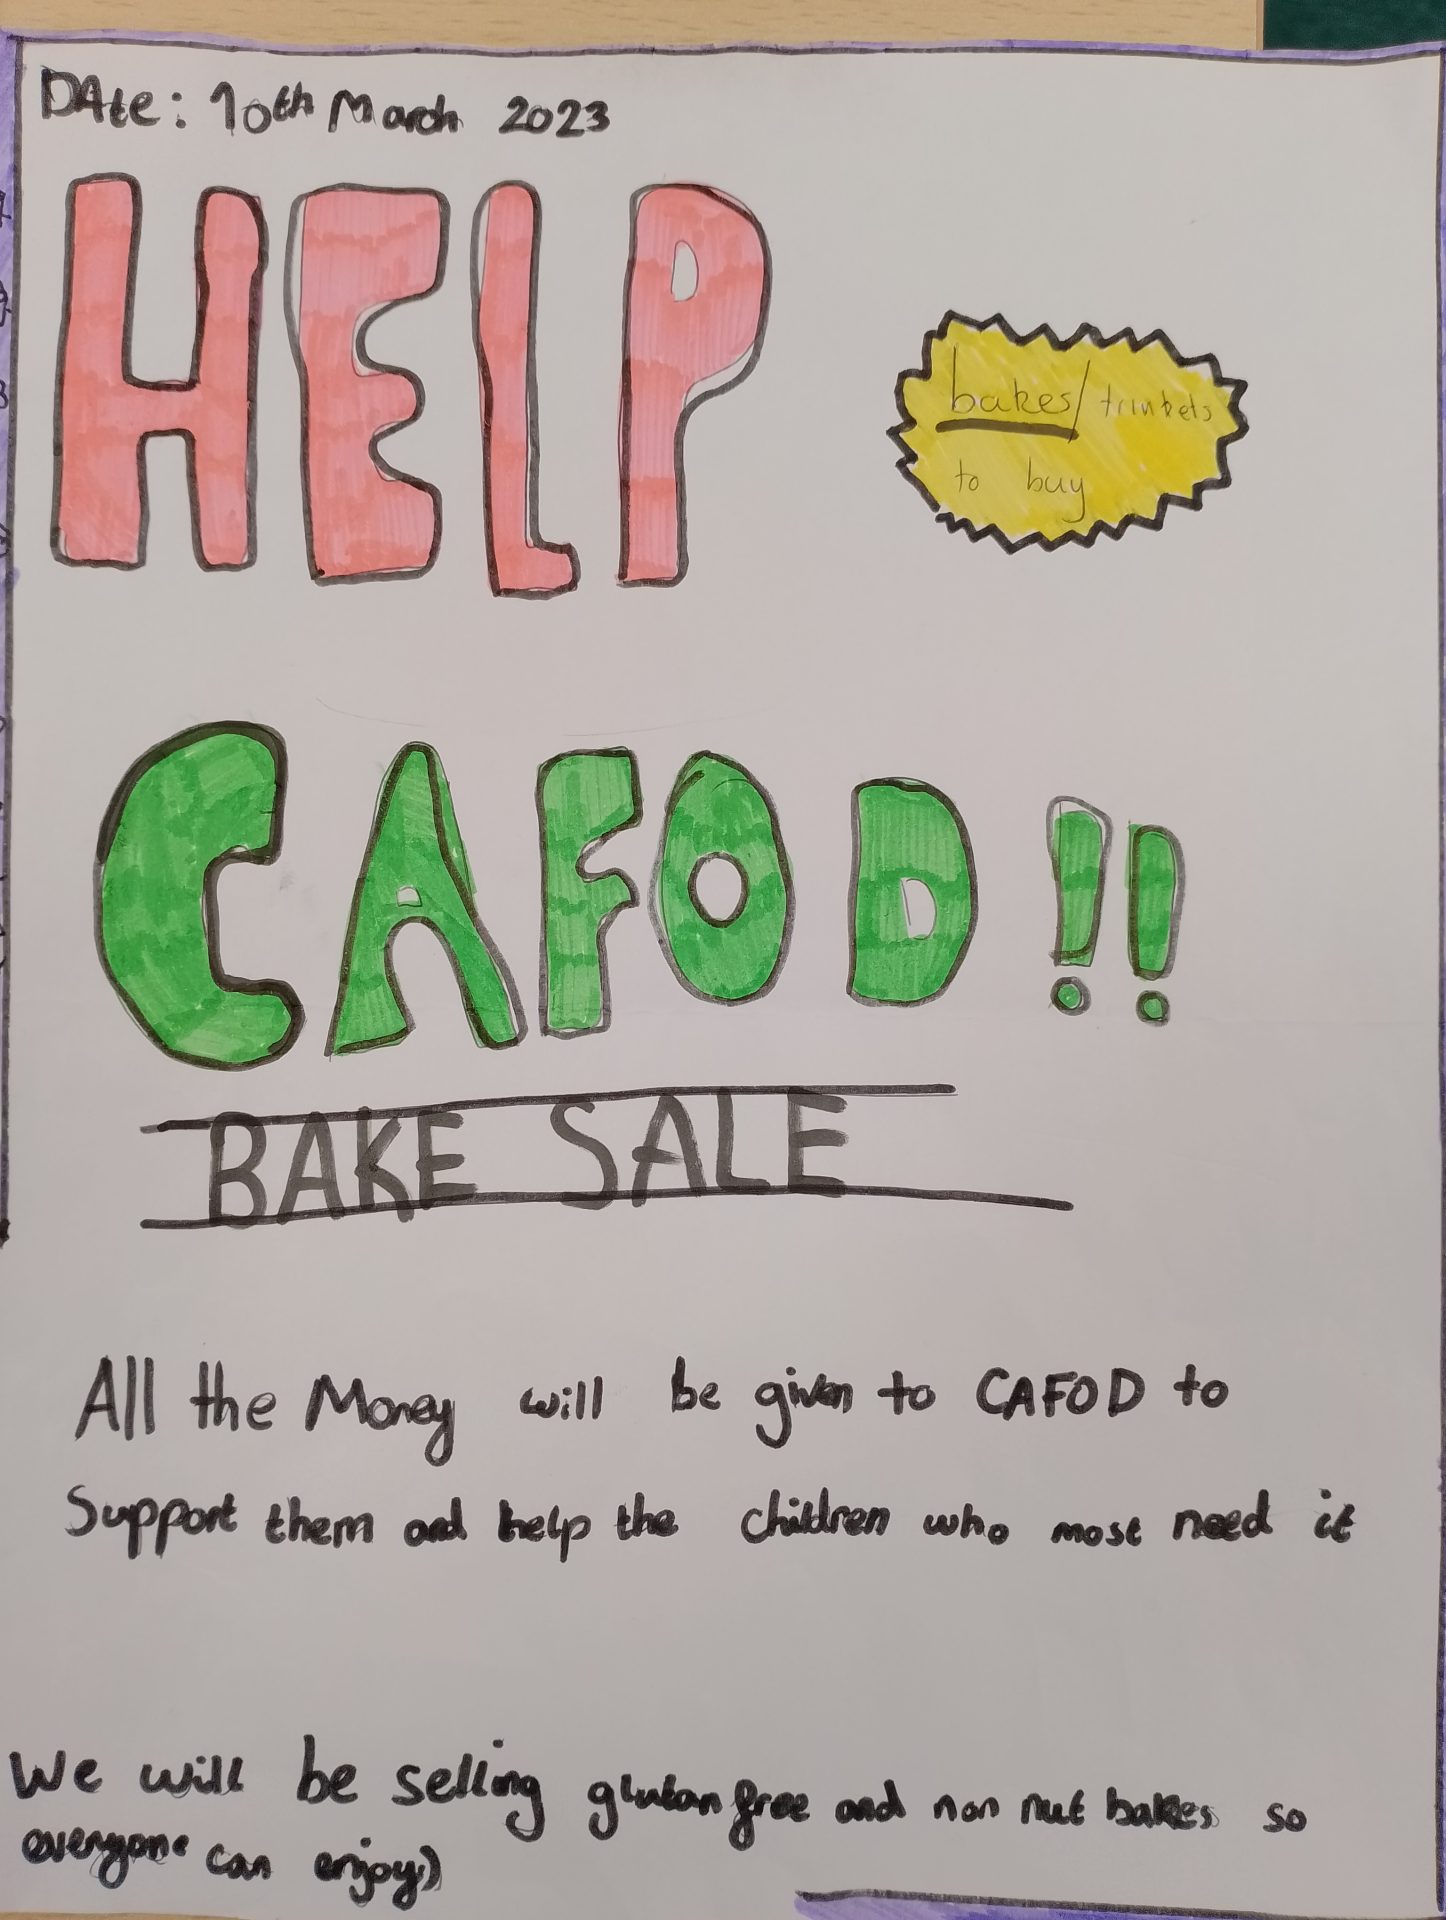 DAte: 10th March 2023
HELP
bakes/trinkets
to buy
CAFOD!!
BAKE SALE
All the Money will be given to CAFOD to
Support them and help the children who most need it
We will be selling glutan free and non nut bakes so
everyone can enjoy:)